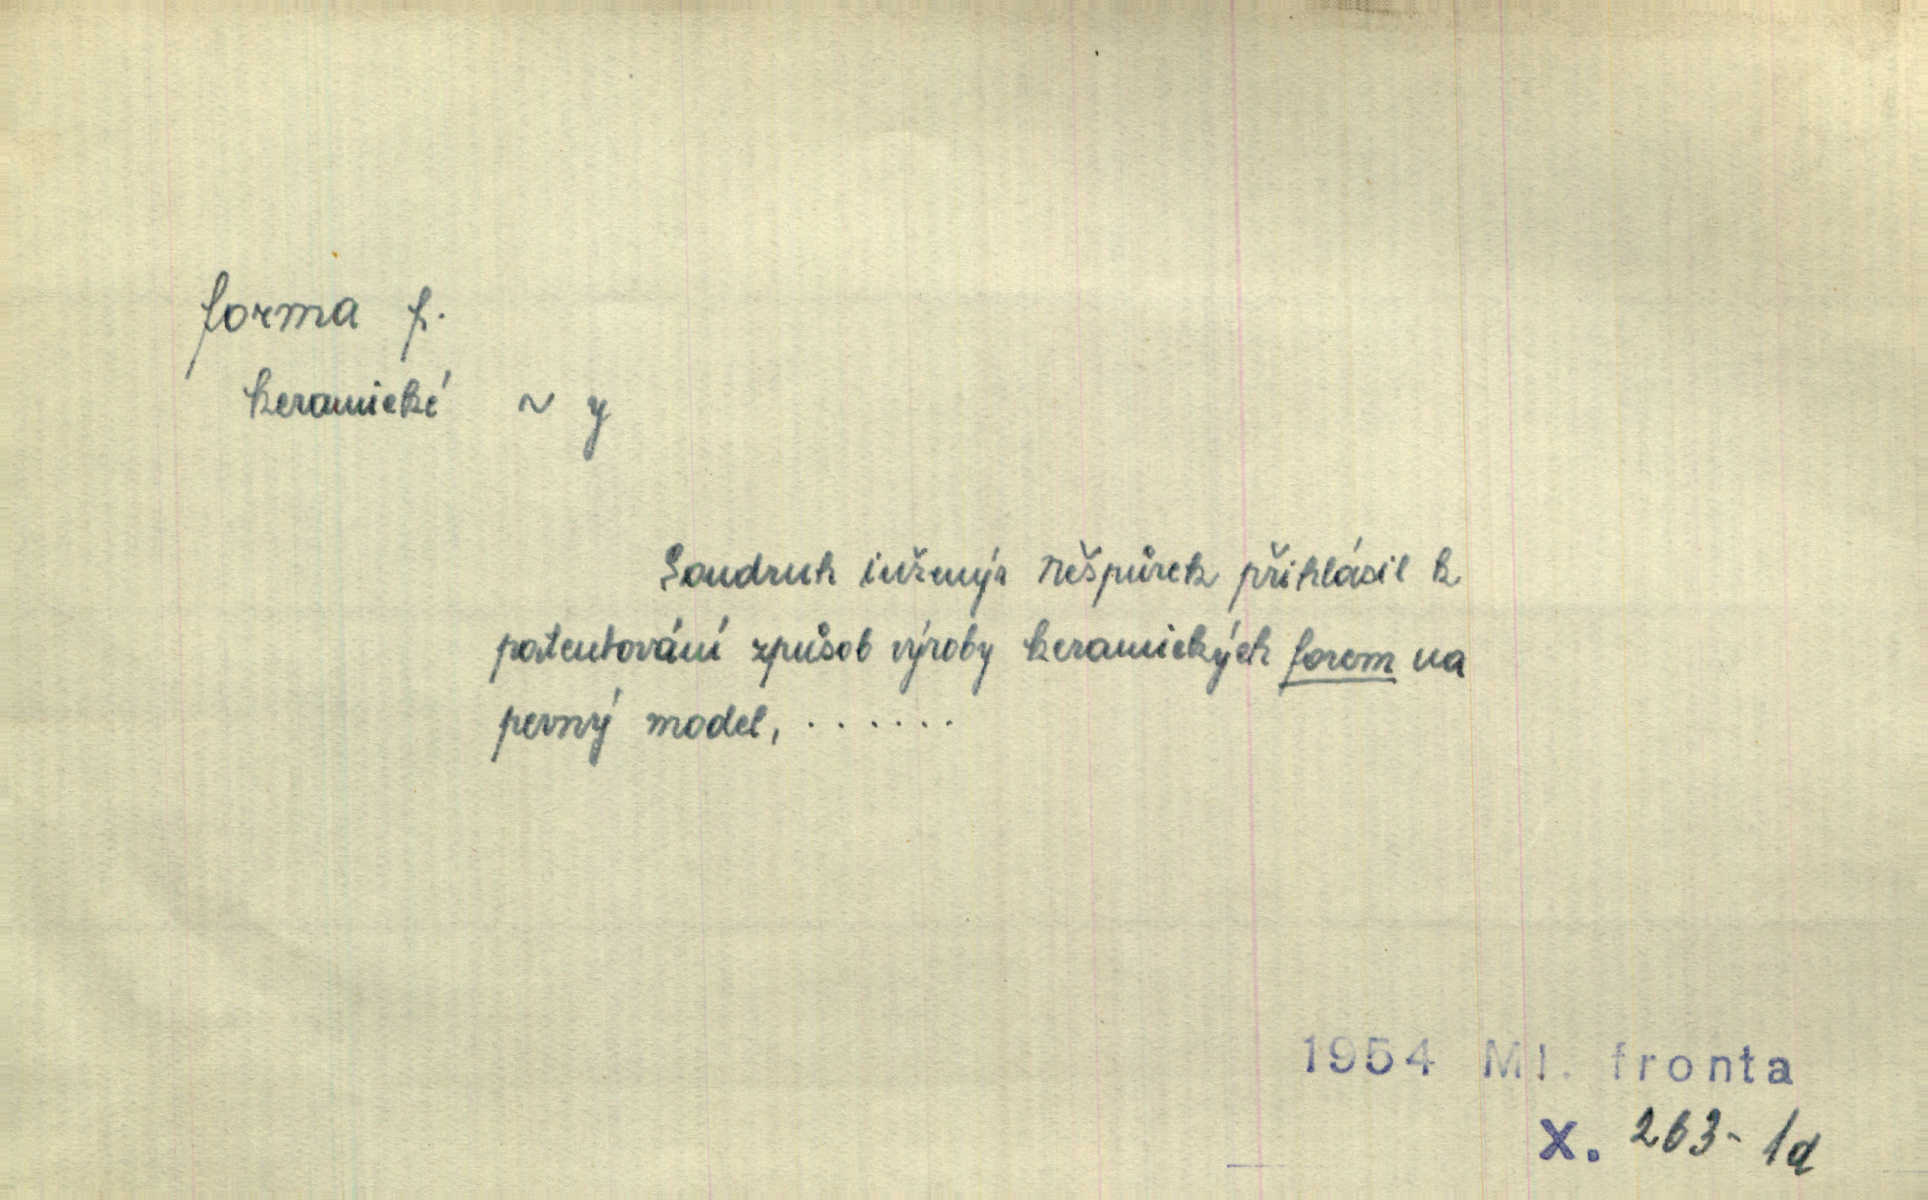 forma f.
keramické ~ y
Soudruh inženýr Nešpůrek přihlásil k
patentování způsob výroby keramických forem na
pevný model, . . . . . .
1954 Ml. fronta
X. 263 - 1d